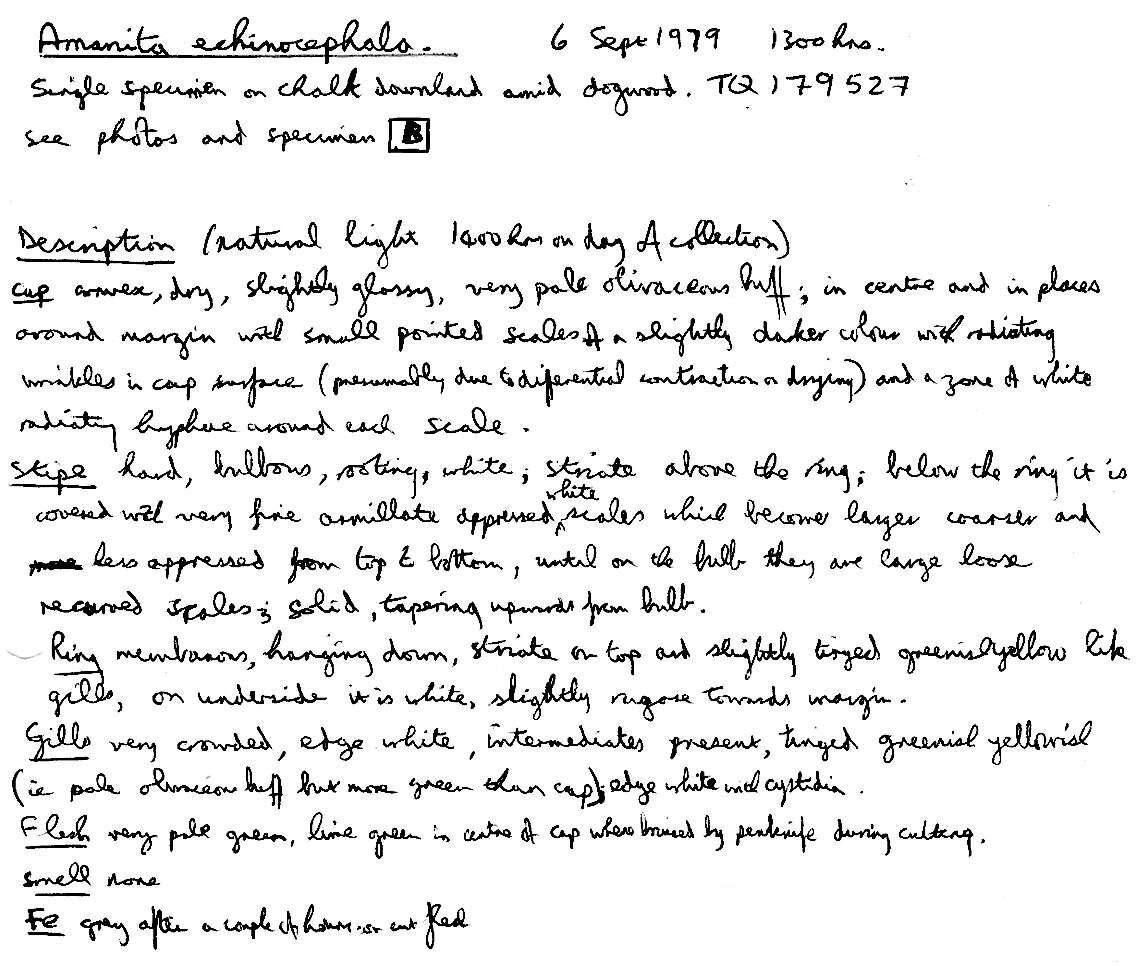 Amanita echinocephala. 6 Sept 1979 1300 hrs.
Single specimen on chalk downland amid dogwood. TQ 179527
see photos and specimen B
Description (natural light 1400 hrs on day of collection)
cap convex, dry, slightly glossy, very pale olivaceous buff; in centre and in places
around margin with small pointed scales of a slightly darker colour with radiating
wrinkles in cap surface (presumably due to differential contraction on drying) and a zone of white
radiating hyphae around each scale.
Stipe hard, bulbous, rooting, white; striate above the ring; below the ring it is
covered with very fine armillate appressed white scales which become larger coarser and
less appressed from top to bottom, until on the bulb they are large loose
recurved scales; solid, tapering upwards from bulb.
Ring membanous, hanging down, striate on top and slightly tinged greenish yellow like
gills, on underside it is white, slightly rugose towards margin.
Gills very crowded, edge white, intermediates present, tinged greenish yellowish
(ie pale olivaceous buff but more green than cap); edge white with cystidia.
Flesh very pale green, lime green in centre of cap where bruised by penknife during cutting.
smell none
Fe grey after a couple of hours on cut flesh